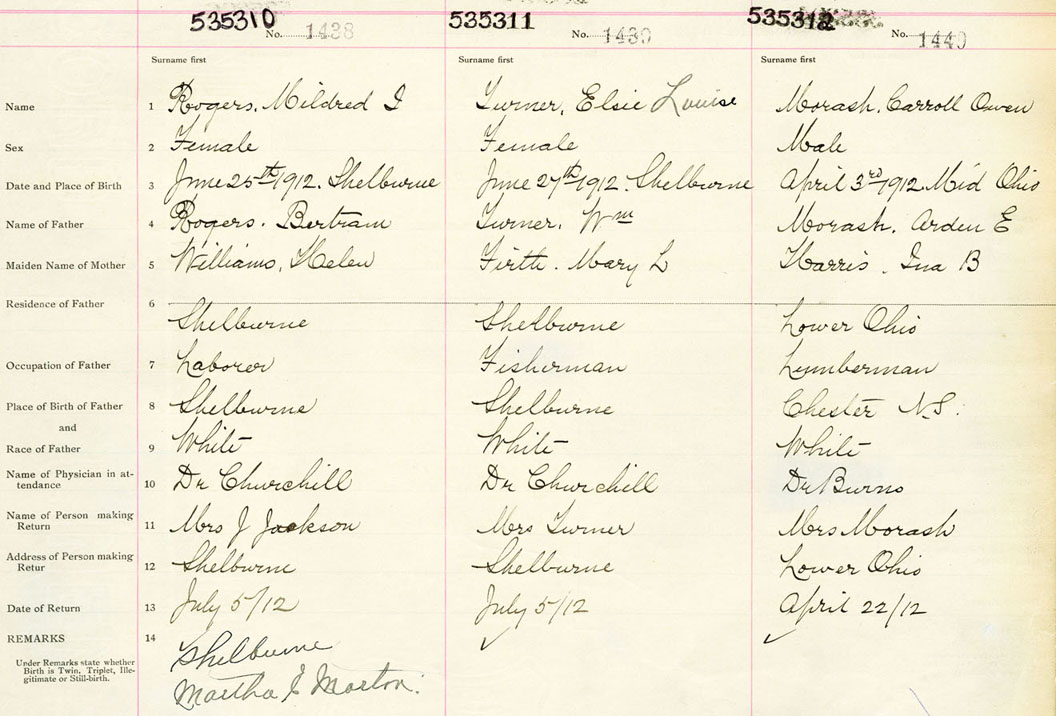 535310 535311 535312
No. 1438 No. 1439 No. 1440
Surname first Surname first Surname first
Name 1 Rogers, Mildred I Turner, Elsie Louise Morash, Carroll Owen
Sex 2 Female Female Male
Date and Place of Birth 3 June 25th 1912. Shelburne June 27th 1912. Shelburne April 3rd 1912 Mid Ohio
Name of Father 4 Rogers. Bertram Turner. Wm Morash. Arden E
Maiden Name of Mother 5 Williams, Helen Firth. Mary L Harris. Ina B
Residence of Father 6
Shelburne Shelburne Lower Ohio
Occupation of Father 7 Laborer Fisherman Lumberman
Place of Birth of Father 8 Shelburne Shelburne Chester N.S.
and
Race of Father 9 White White White
Name of Physician in at-
tendance 10 Dr Churchill Dr Churchill Dr Burns
Name of Person making
Return 11 Mrs J Jackson Mrs Turner Mrs Morash
Address of Person making
Retur 12 Shelburne Shelburne Lower Ohio
Date of Return 13 July 5/12 July 5/12 April 22/12
REMARKS 14
Shelburne
Under Remarks state whether
Birth is Twin, Triplet, Ille-
gitimate or Still-birth.
Martha E Morton.